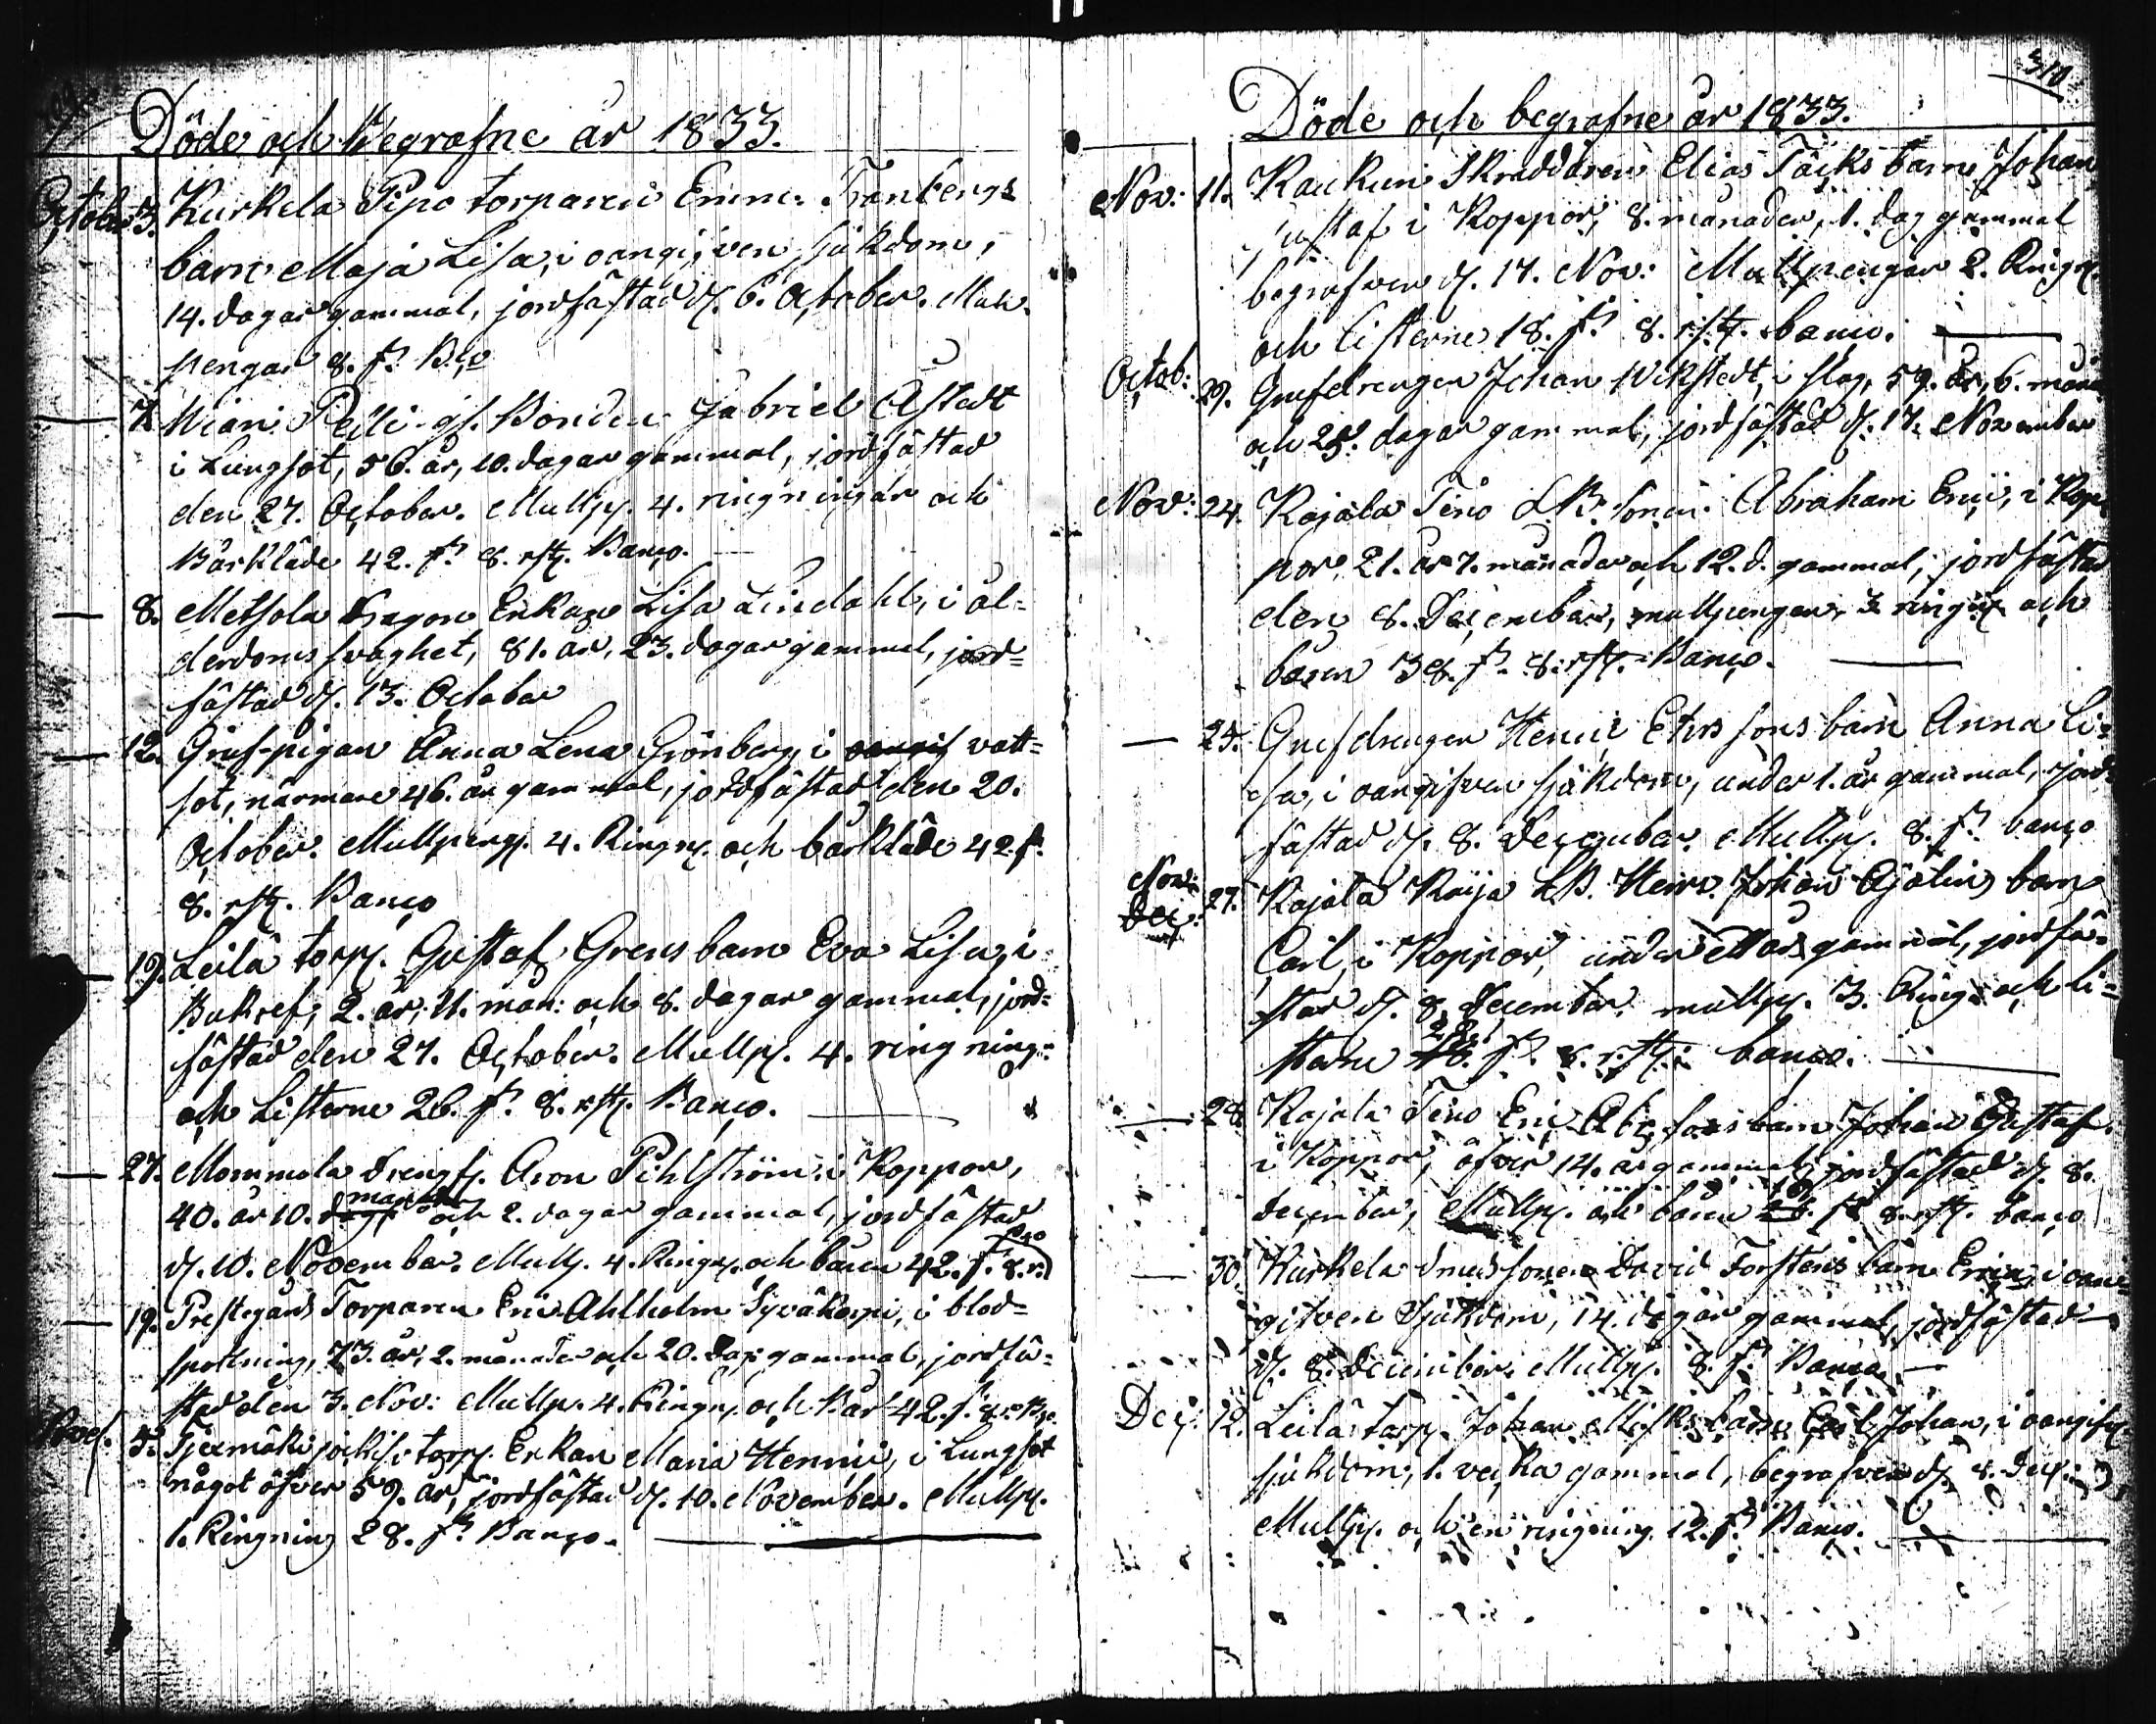 Döde och Begrafne år 1833.
October 3. Kurkela Pipo torparen Tranbergs
barn Maja Lisa, i oangifven sjukdom,
14. dagar gammal, jordfästad d. 6. October. Mull-
pengar 8. s. Bco
— 7. Peili gl. Bonden Gabriel Åstedt
i Lungsot, 56. år, 10. dagar gammal, jordfästad
den 27. October. Mullp. 4. ringningar och
Bårkläde 42. s. 8. rst. Banco.
— 8. Metsola Enkan Lisa Lindahl, i ål-
derdoms svaghet, 81. år, 23. dagar gammal, jord-
fästad d. 13. October
— 12. Gref-pigan Anna Lena Grönberg, i vatt-
sot, närmare 46. år gammal, jordfästad den 20.
October. Mullpeng. 4. Ringn. och bårkläde 42. s.
8. rst. Banco
— 19. Leilä torp. Gustaf Grens barn Eva Lisa, i
Bukref, 2. år, 11. mån: och 8. dagar gammal, jord-
fästad den 27. October. Mullp. 4. ringning:
och Listerne 26. s. 8. rst. Banco.
— 27. Mommola Aron Pihlström i Koppor,
40. år 10. månader och 2. dagar gammal, jordfästad
d. 10. November. Mullp. 4. Ringn. och båren 42. s. 8. r. Bco
— 19. Prestegårds Torparen Eric Ahlholm i blod-
spottning, 73. år, 2. månader och 20. dag: gammal, jordfä-
stad den 3. Nov: Mullp. 4. Ringn. och Bår 42. s.
Nov. 3. torp. Enkan Maria i Lungsot
något öfver 59. år, jordfästad d. 10. November. Mullp.
1. Ringning 28. s. Banco.
310
Döde och begrafne år 1833.
Nov: 11. Kaukuri Skräddaren Elias Täcks barn Johan
Gustaf i Koppor, 8. månader, 1. dag gammal
begrafven d. 17. Nov: Mullpengar 2. Ringn.
och listerne 18. s. 8. rst. banco.
Octob: 29. Grefdrengen Johan Wikstedt, i slag, 59. år, 6. måna
och 25. dagar gammal, jordfästad d. 17. November
Nov: 24. Kajala Tino Sonen Abraham Eric, i Kop-
por, 21. år 7. månader och 12. d. gammal, jordfästad
den 8. December, mullpengar, 3 ringn. och
båren 38. s. 8. rst. Banco.
— 25. Grefdrengen Henric Ehrssons barn Anna Li-
sa, i oangifven sjukdom, under 1. år gammal, jord-
fästad d. 8. December. Mullp. 8. s. banco
Nov: Dec: 27. Kajala Raija Johan barn
Carl, i Koppor, under ett år gammal, jordfä-
stad d. 8. December. mullp. 3. Ring: och li-
sterne 22. s. 8. rst: banco.
— 28. Kajala Tino Eric Abr. sons barn Johan Gustaf
i Koppor, öfver 14. år gammal, jordfästad d. 8.
December, Mullp. och båren s. 8. rst. banco
— 30. Kurkela David Forstens barn Eric, i oan-
gifven Sjukdom, 14. dagar gammal, jordfästad
d. 8. December. Mullp. 8. s. Banco
Dec: 12. Leilä torp. Johan barn Carl Johan, i oangifv
sjukdom, 1. vecka gammal, begrafven d. 8. Dec:
Mullp. och en ringning 12. s. Banco.